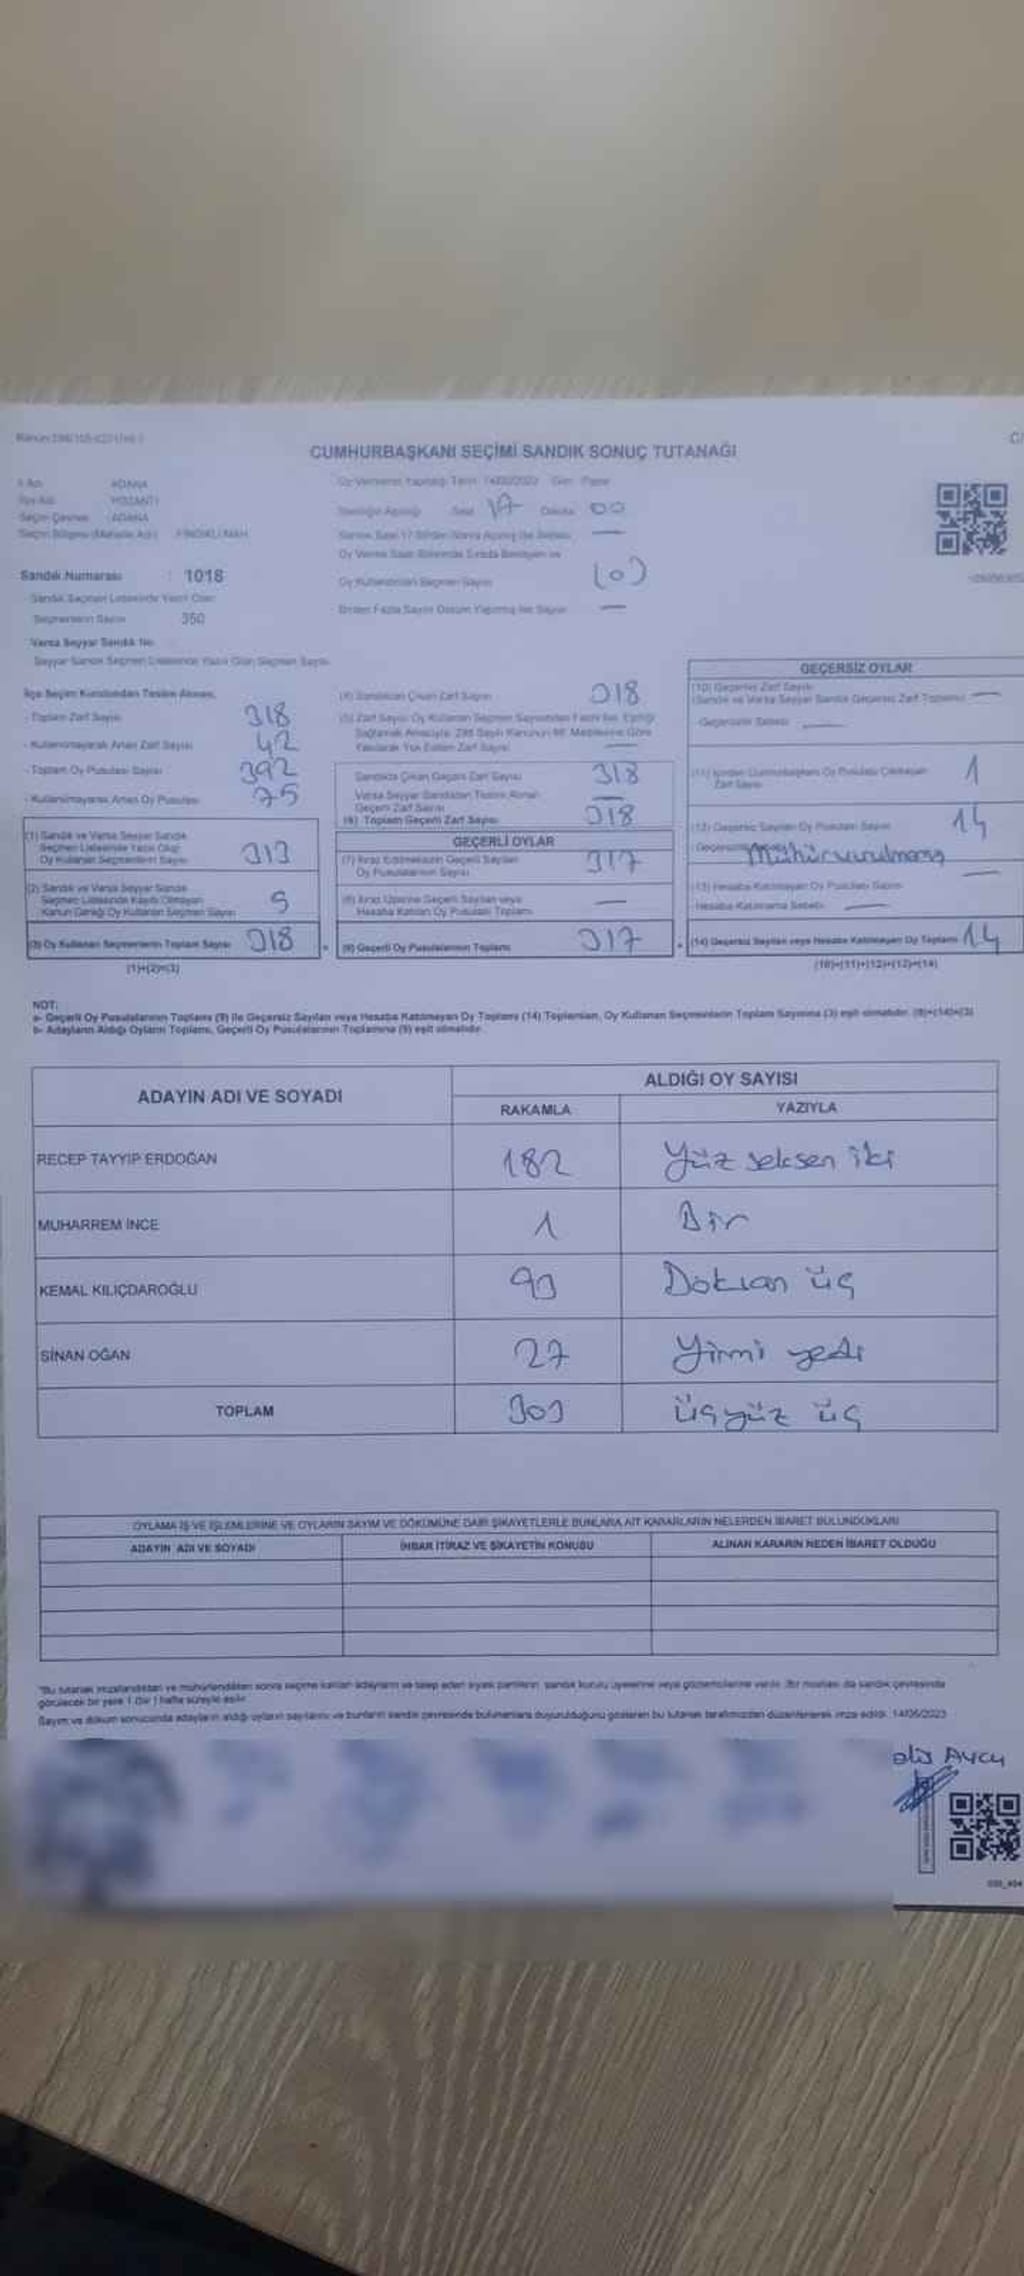 CUMHURBAŞKANI SEÇİMİ SANDIK SONUÇ TUTANAĞI
İl Adı ADANA
Seçim Çevresi ADANA
Seçim Bölgesi (Mahalle Adı) FINDIKLI MAH.
Sandık Numarası : 1018
Sandık Seçmen Listesinde Yazılı Olan
Seçmenlerin Sayısı 350
Varsa Seyyar Sandık No
Seyyar Sandık Seçmen Listesinde Yazılı Olan Seçmen Sayısı
Oy Vermenin Yapıldığı Tarih 14/05/2023 Gün Pazar
Sandığın Açıldığı Saat 17 Dakika 00
Oy Kullandırılan Seçmen Sayısı (0)
Birden Fazla Sayım Döküm Yapılmış İse Sayısı —
İlçe Seçim Kurulundan Teslim Alınan,
- Toplam Zarf Sayısı 318
- Kullanılmayarak Artan Zarf Sayısı 42
- Toplam Oy Pusulası Sayısı 392
- Kullanılmayarak Artan Oy Pusulası 75
(1) Sandık ve Varsa Seyyar Sandık
Seçmen Listesinde Yazılı Olup
Oy Kullanan Seçmenlerin Sayısı 313
(2) Sandık ve Varsa Seyyar Sandık
Seçmen Listesinde Kayıtlı Olmayan
Kanun Gereği Oy Kullanan Seçmen Sayısı 5
(3) Oy Kullanan Seçmenlerin Toplam Sayısı 318
(1)+(2)=(3)
(4) Sandıktan Çıkan Zarf Sayısı 318
Sandıkta Çıkan Geçerli Zarf Sayısı 318
Varsa Seyyar Sandıktan Teslim Alınan
Geçerli Zarf Sayısı —
(6) Toplam Geçerli Zarf Sayısı 318
GEÇERLİ OYLAR
(7) İtiraz Edilmeksizin Geçerli Sayılan
Oy Pusulalarının Sayısı 317
(8) İtiraz Üzerine Geçerli Sayılan veya
Hesaba Katılan Oy Pusulası Toplamı —
(9) Geçerli Oy Pusulalarının Toplamı 317
GEÇERSİZ OYLAR
(10) Geçersiz Zarf Sayısı
(Sandık ve Varsa Seyyar Sandık Geçersiz Zarf Toplamı) —
Geçersizlik Sebebi —
(11) İçinden Cumhurbaşkanı Oy Pusulası Çıkmayan
Zarf Sayısı 1
(12) Geçersiz Sayılan Oy Pusulası Sayısı 14
(13) Hesaba Katılmayan Oy Pusulası Sayısı —
Hesaba Katılmama Sebebi —
(14) Geçersiz Sayılan veya Hesaba Katılmayan Oy Toplamı 14
(10)+(11)+(12)+(13)=(14)
NOT:
a- Geçerli Oy Pusulalarının Toplamı (9) ile Geçersiz Sayılan veya Hesaba Katılmayan Oy Toplamı (14) Toplamları, Oy Kullanan Seçmenlerin Toplam Sayısına (3) eşit olmalıdır. (9)+(14)=(3)
b- Adayların Aldığı Oyların Toplamı, Geçerli Oy Pusulalarının Toplamına (9) eşit olmalıdır.
ADAYIN ADI VE SOYADI
ALDIĞI OY SAYISI
RAKAMLA YAZIYLA
RECEP TAYYİP ERDOĞAN 182 Yüz seksen iki
MUHARREM İNCE 1 Bir
KEMAL KILIÇDAROĞLU 93 Doksan üç
SİNAN OĞAN 27 Yirmi yedi
TOPLAM 303 üçyüz üç
OYLAMA İŞ VE İŞLEMLERİNE VE OYLARIN SAYIM VE DÖKÜMÜNE DAİR ŞİKAYETLERLE BUNLARA AİT KARARLARIN NELERDEN İBARET BULUNDUKLARI
ADAYIN ADI VE SOYADI İHBAR İTİRAZ VE ŞİKAYETİN KONUSU ALINAN KARARIN NEDEN İBARET OLDUĞU
"Bu tutanak imzalandıktan ve mühürlendikten sonra seçime katılan adayların ve talep eden siyasi partilerin sandık kurulu üyelerine veya gözlemcilerine verilir. Bir nüshası da sandık çevresinde
görülecek bir yere 1 (bir) hafta süreyle asılır"
Sayım ve döküm sonucunda adayların aldığı oyların sayılarını ve bunların sandık çevresinde bulunanlara duyurulduğunu gösteren bu tutanak tarafımızdan düzenlenerek imza edildi. 14/05/2023